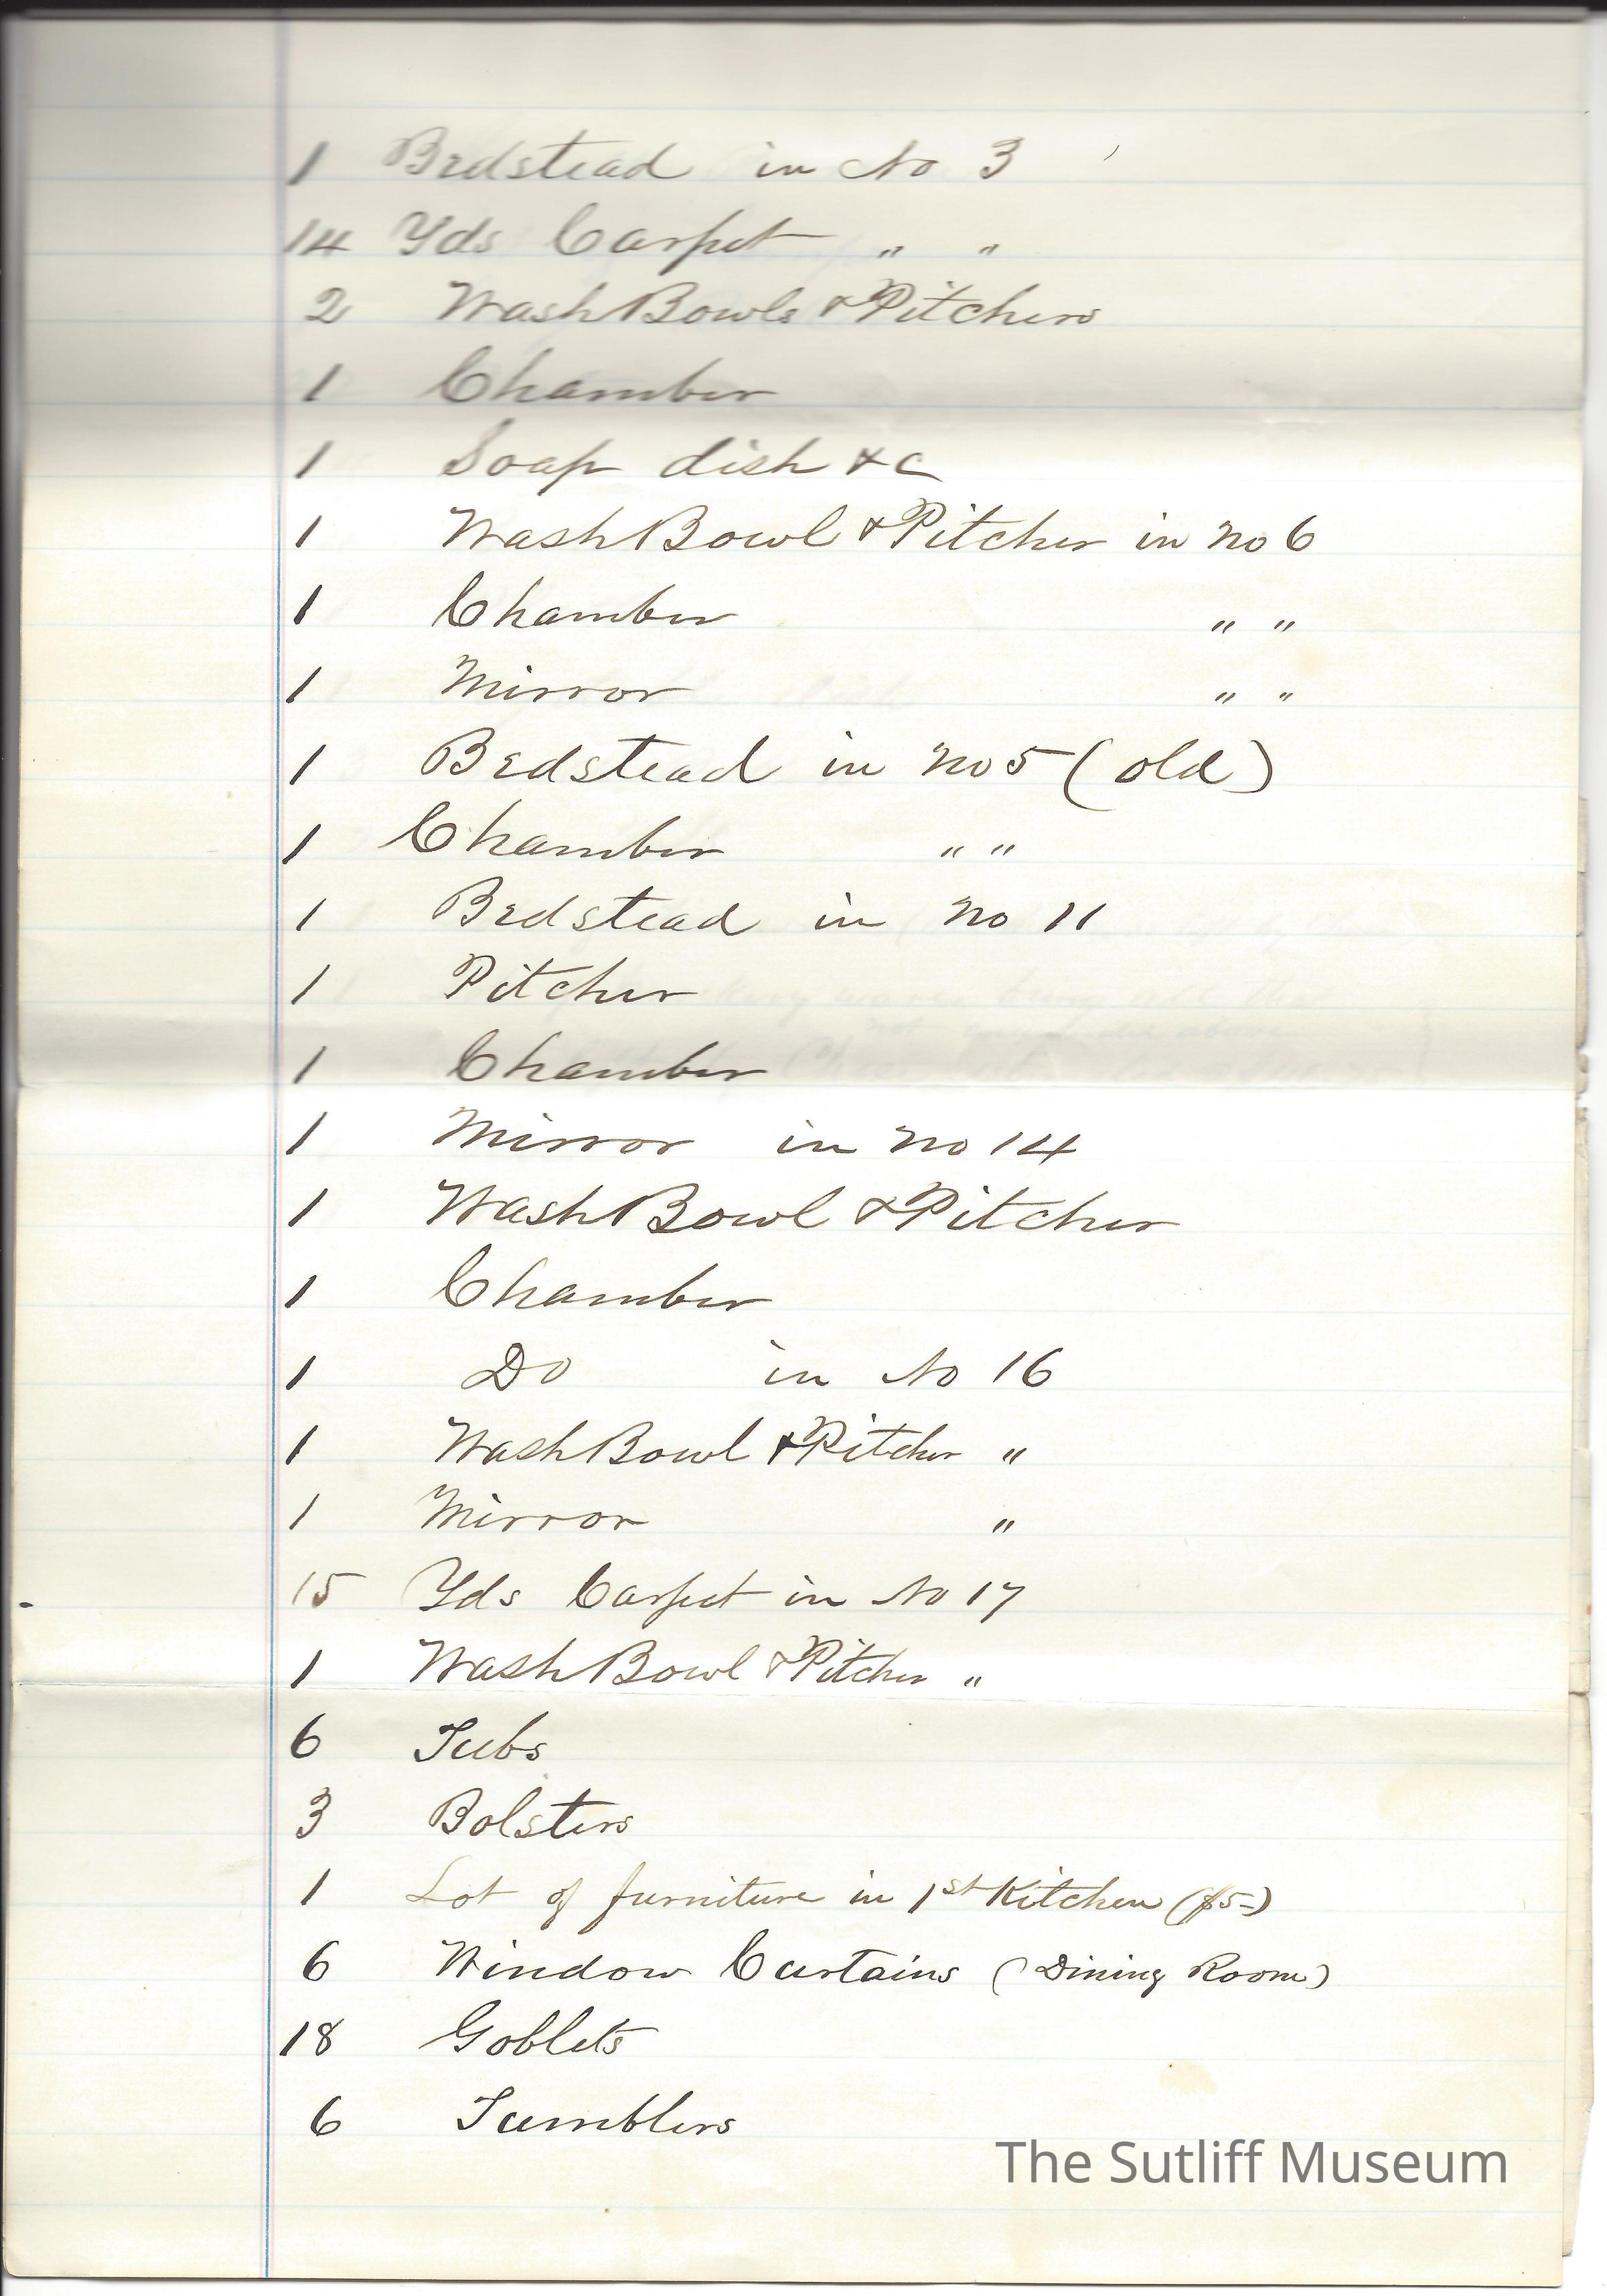 1 Bedstead in No 3
14 Yds Carpet " "
2 Wash Bowls & Pitchers
1 Chamber
1 Soap dish &c
1 Wash Bowl & Pitcher in No 6
1 Chamber " "
1 Mirror " "
1 Bedstead in No 5 (old)
1 Chamber " "
1 Bedstead in No 11
1 Pitcher
1 Chamber
1 Mirror in No 14
1 Wash Bowl & Pitcher
1 Chamber
1 Do in No 16
1 Wash Bowl & Pitcher "
1 Mirror "
15 Yds Carpet in No 17
1 Wash Bowl & Pitcher "
6 Tubs
3 Bolsters
1 Lot of furniture in 1st Kitchen ($5-)
6 Window Curtains (Dining Room)
18 Goblets
6 Tumblers
The Sutliff Museum